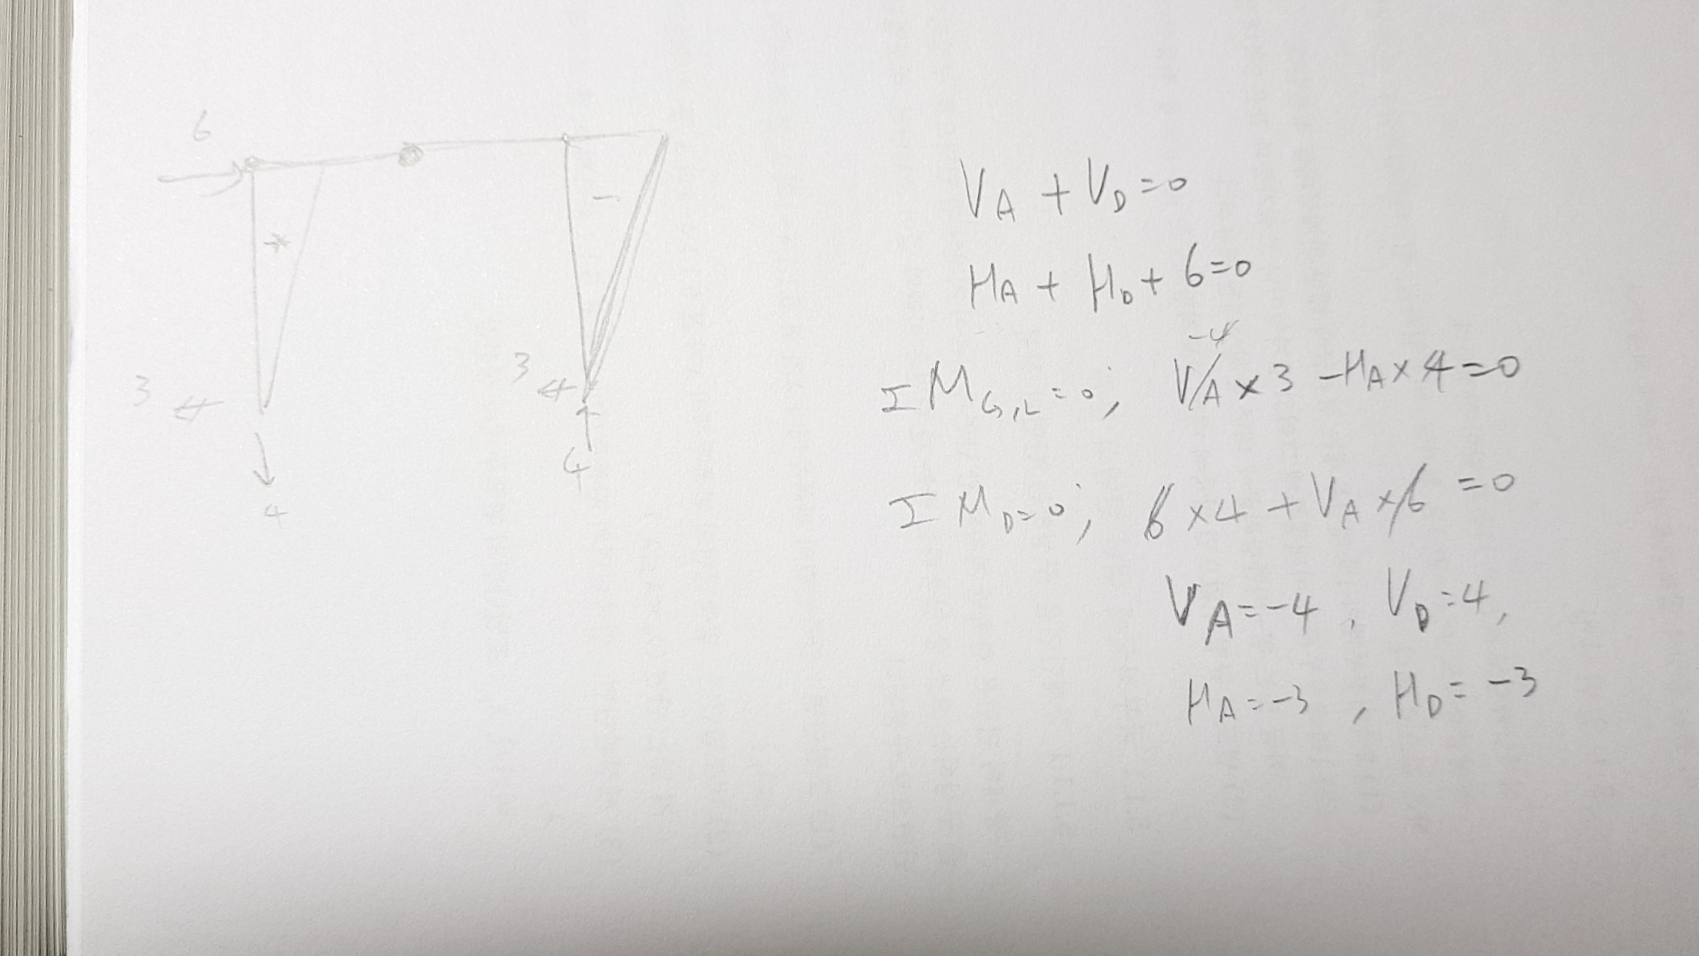 6
3
4
3
4
V_A + V_D = 0
H_A + H_D + 6 = 0
-4
ΣM_G,L = 0; V_A × 3 - H_A × 4 = 0
ΣM_D = 0; 6 × 4 + V_A × 6 = 0
V_A = -4, V_D = 4,
H_A = -3, H_D = -3